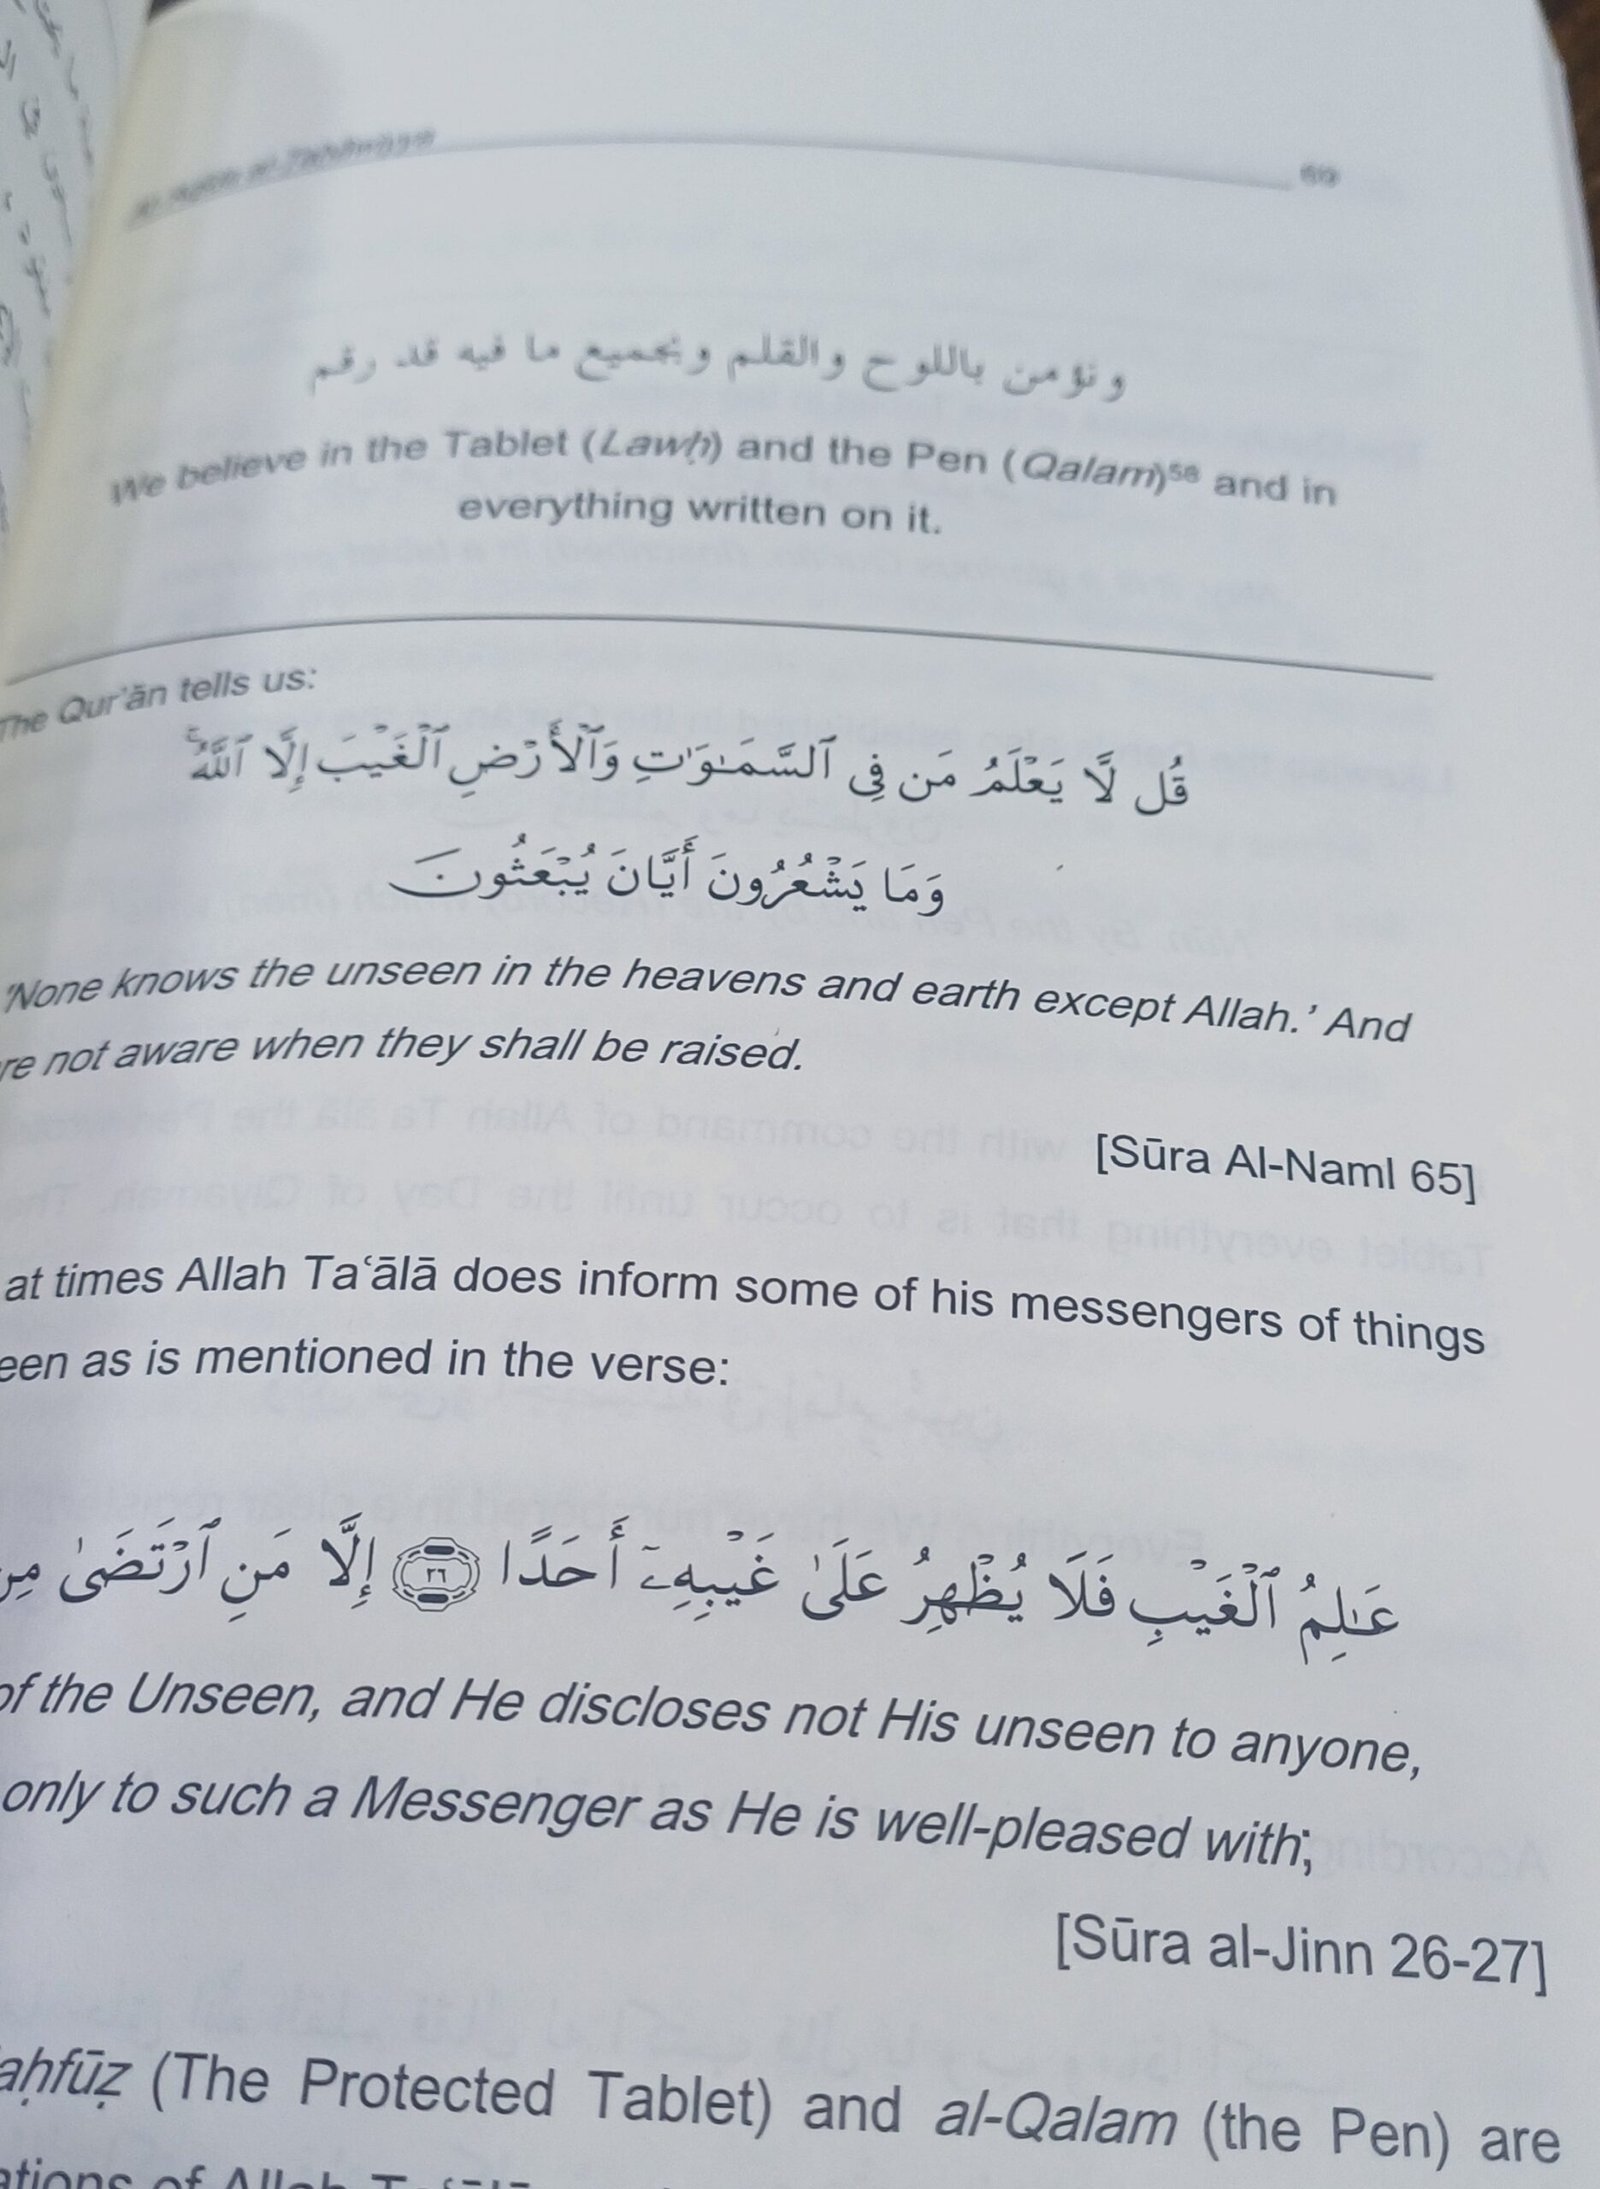 69
ونؤمن باللوح والقلم وبجميع ما فيه قد رقم
We believe in the Tablet (Lawḥ) and the Pen (Qalam)⁵⁸ and in
everything written on it.
The Qur’ān tells us:
قُل لَّا يَعْلَمُ مَن فِى ٱلسَّمَـٰوَٰتِ وَٱلْأَرْضِ ٱلْغَيْبَ إِلَّا ٱللَّهُ ۚ
وَمَا يَشْعُرُونَ أَيَّانَ يُبْعَثُونَ
‘None knows the unseen in the heavens and earth except Allah.’ And
not aware when they shall be raised.
[Sūra Al-Naml 65]
at times Allah Ta‘ālā does inform some of his messengers of things
as is mentioned in the verse:
عَـٰلِمُ ٱلْغَيْبِ فَلَا يُظْهِرُ عَلَىٰ غَيْبِهِۦٓ أَحَدًا ٢٦ إِلَّا مَنِ ٱرْتَضَىٰ
of the Unseen, and He discloses not His unseen to anyone,
only to such a Messenger as He is well-pleased with;
[Sūra al-Jinn 26-27]
(The Protected Tablet) and al-Qalam (the Pen) are
of Allah